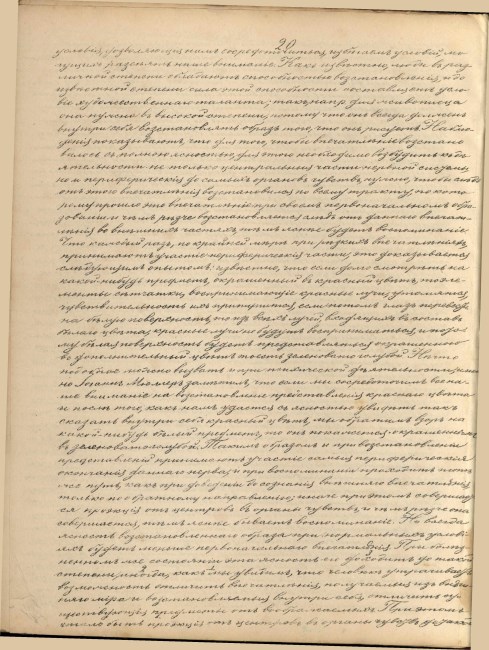 20
условія, позволяющія намъ сосредоточиться, избѣгаемъ условій, мо-
гущихъ разсѣять наше вниманіе. Какъ извѣстно, люди въ раз-
личной степени обладаютъ способностью возстановленія, и до
извѣстной степени сила этой способности составляетъ усло-
віе художественнаго таланта; такъ, напр. для живописца
она нужна въ высокой степени, потому что онъ всегда долженъ
внутри себя возстановлять образъ того, что онъ рисуетъ. Наблю-
денія показываютъ, что для того, чтобы впечатлѣніе возстано-
вилось съ полною ясностью, для этого необходимо возбудить къ дѣ-
ятельности не только центральныя части нервной системы,
но и периферическія до самыхъ органовъ чувствъ, нужно, чтобы слѣдъ
отъ этого впечатлѣнія возстановился по всему тракту, по кото-
рому прошло это впечатлѣніе при своемъ первоначальномъ обра-
зованіи и чѣмъ рѣзче возстановляется слѣдъ отъ даннаго впечат-
лѣнія во внѣшнихъ частяхъ, тѣмъ яснѣе будетъ воспоминаніе.
Что каждый разъ, по крайней мѣрѣ при рѣзкихъ впечатлѣніяхъ,
принимаютъ участіе периферическія части, это доказывается
слѣдующимъ опытомъ: извѣстно, что если долго смотрѣть на
какой-нибудь предметъ, окрашенный въ красный цвѣтъ, то эле-
менты сѣтчатки, воспринимающіе красные лучи, утомляются,
чувствительность ихъ притупится; если потомъ глазъ перевести
на бѣлую поверхность, то изъ всѣхъ лучей, входящихъ въ составъ
бѣлаго цвѣта, красные лучи не будутъ восприниматься, и пото-
му бѣлая поверхность будетъ представляться окрашенною
въ дополнительный цвѣтъ, то есть зеленовато-голубой. Нѣчто
подобное можно вызвать и при психической дѣятельности; имен-
но Іоганнъ Мюллеръ замѣтилъ, что если мы сосредоточимъ все на-
ше вниманіе на возстановленіе представленія краснаго цвѣта
и послѣ того, какъ намъ удастся съ ясностью увидѣть такъ
сказать внутри себя красный цвѣтъ, мы обратимъ взоръ на
какой-нибудь бѣлый предметъ, то онъ покажется окрашеннымъ
въ зеленовато-голубой. Такимъ образомъ и при возстановленіи
представленій принимаютъ участіе самыя периферическія
окончанія даннаго нерва, и при воспоминаніи проходитъ тотъ
же путь, какъ при доведеніи до сознанія внѣшняго впечатлѣнія
только въ обратномъ направленіи; иначе при этомъ совершает-
ся проэкція отъ центровъ въ органы чувствъ, и чѣмъ рѣзче она
совершается, тѣмъ яснѣе бываетъ воспоминаніе. Но всегда
ясность возстановленнаго образа при нормальныхъ услові-
яхъ будетъ меньше первоначальнаго впечатлѣнія. При болѣз-
ненномъ же состояніи эта ясность можетъ доходить до такой
степени, иногда, какъ мы увидимъ, что человѣкъ утрачиваетъ
возможность отличить впечатлѣнія, получаемыя изъ внѣш-
няго міра и возстановляемыя внутри себя, отличить су-
ществующіе предметы отъ воображаемыхъ. При этомъ